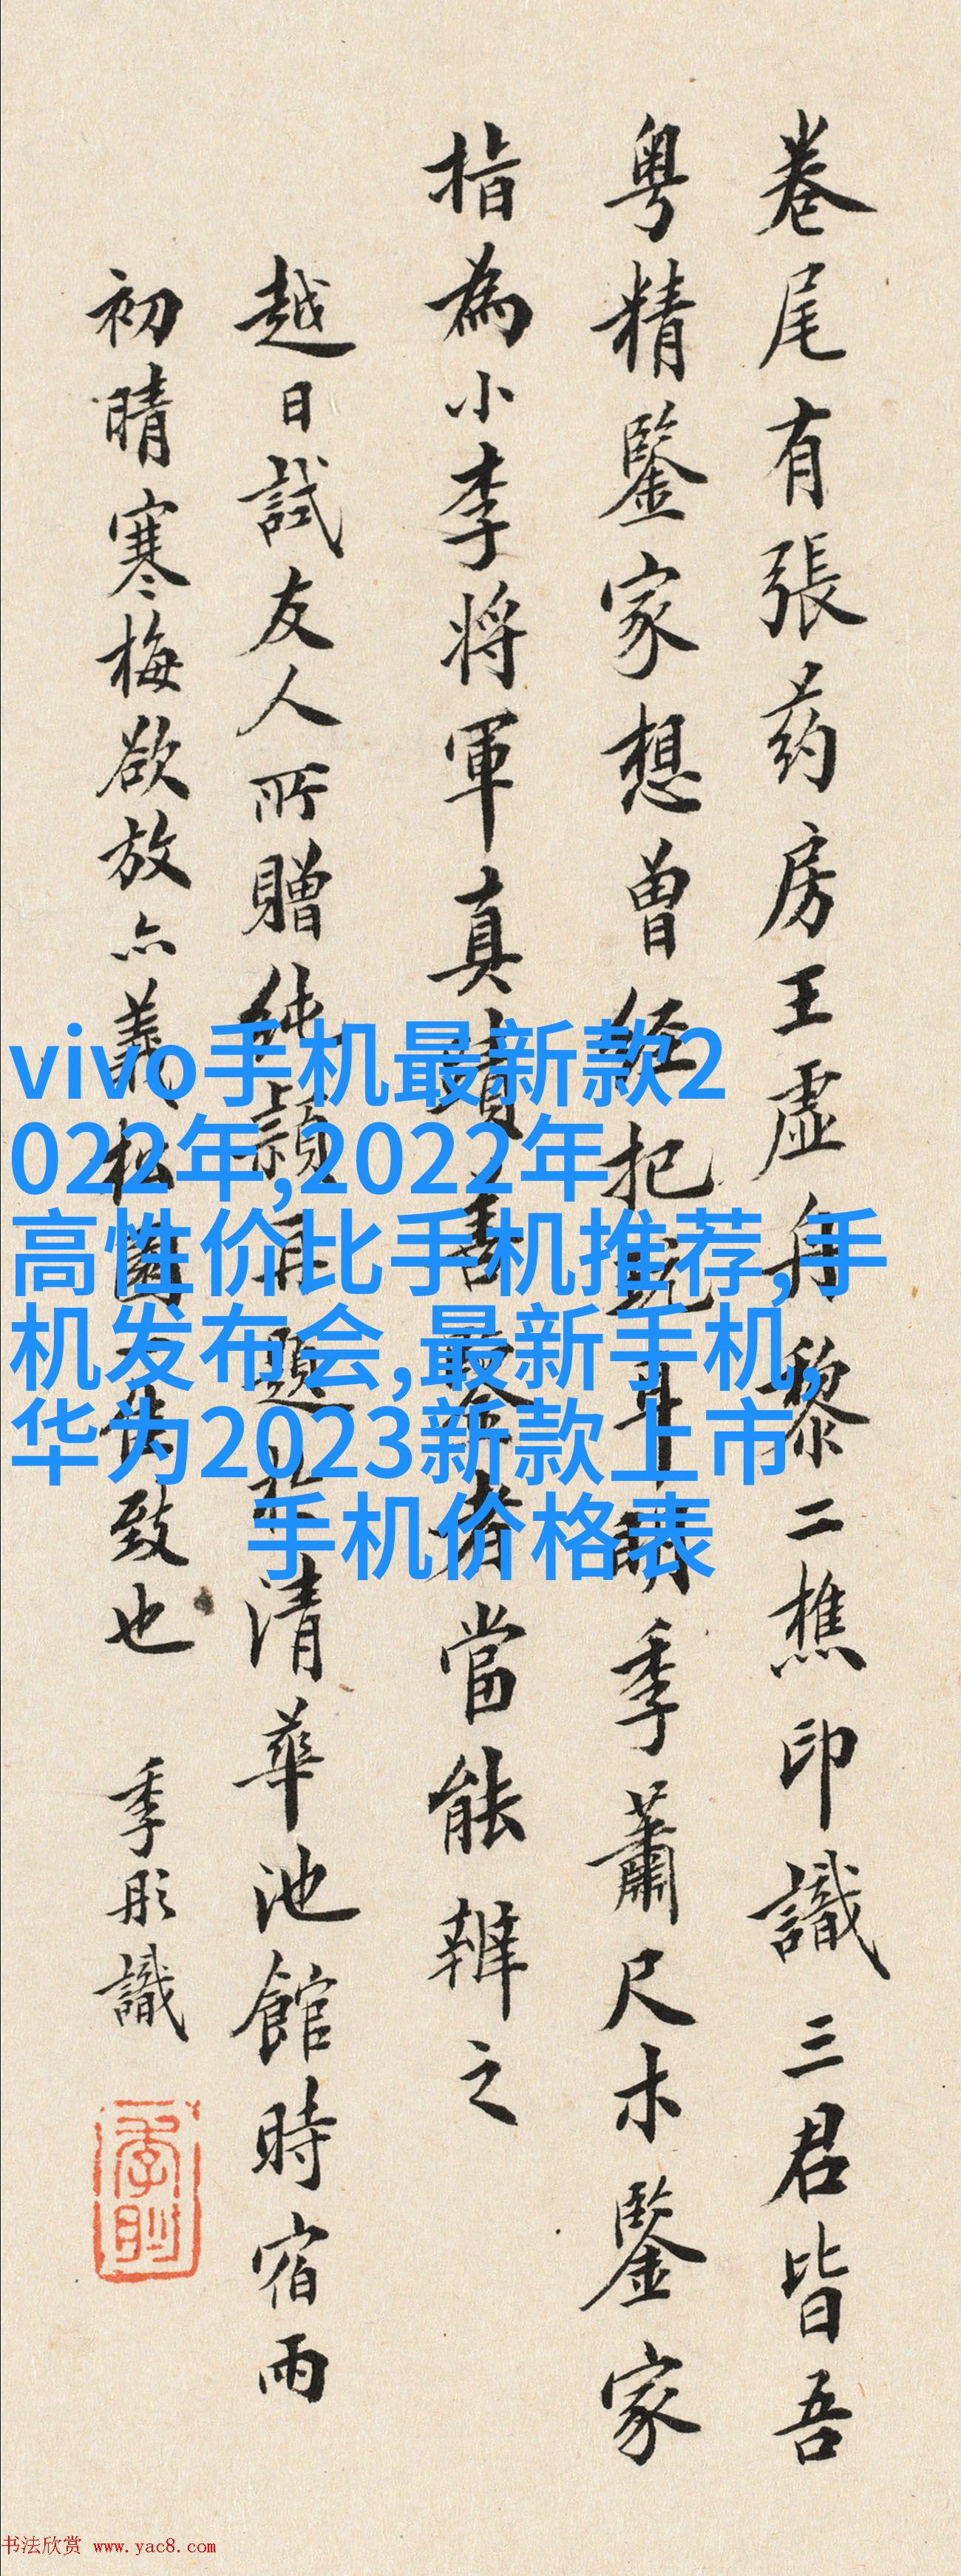 卷尾有張药房王虚舟黎二樵印識三君皆吾
粤精鑒家想曾經把翫耳明季蕭尺木鑒家
指為小李将軍真蹟善鑒者當能辨之
越日試友人所贈純穎再題於清華池館時宿雨
初晴寒梅欲放亦義松園一佳致也 季彤識
vivo手机最新款2
022年,2022年
高性价比手机推荐,手
机发布会,最新手机,
华为2023新款上市
手机价格表
书法欣赏 www.yac8.com